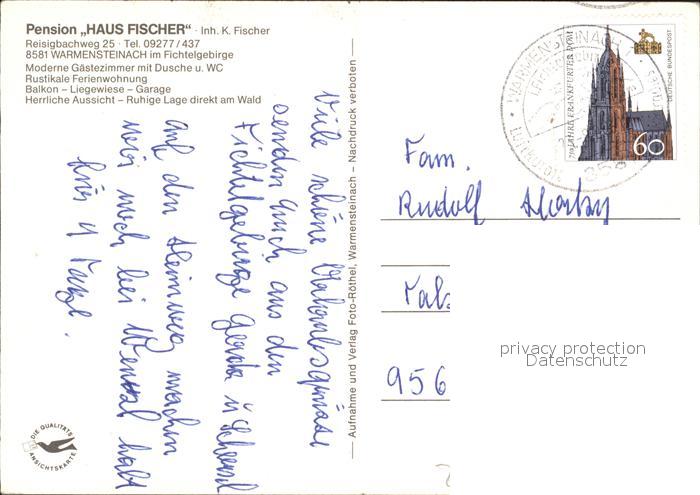 Pension „HAUS FISCHER“ · Inh. K. Fischer
Reisigbachweg 25 · Tel. 09277/437
8581 WARMENSTEINACH im Fichtelgebirge
Moderne Gästezimmer mit Dusche u. WC
Rustikale Ferienwohnung
Balkon – Liegewiese – Garage
Herrliche Aussicht – Ruhige Lage direkt am Wald
Viele schöne Urlaubsgrüsse
senden Euch aus den
Fichtelgebirge Gerda u
auf den Heimweg machen
wir noch bei halt
4 Tage.
DIE QUALITÄTS
ANSICHTSKARTE
Aufnahme und Verlag Foto-Röthel, Warmensteinach – Nachdruck verboten
WARMENSTEINACH
Luftkurort
858
750 JAHRE FRANKFURTER DOM
DEUTSCHE BUNDESPOST
60
Fam.
Rudolf
956
privacy protection
Datenschutz